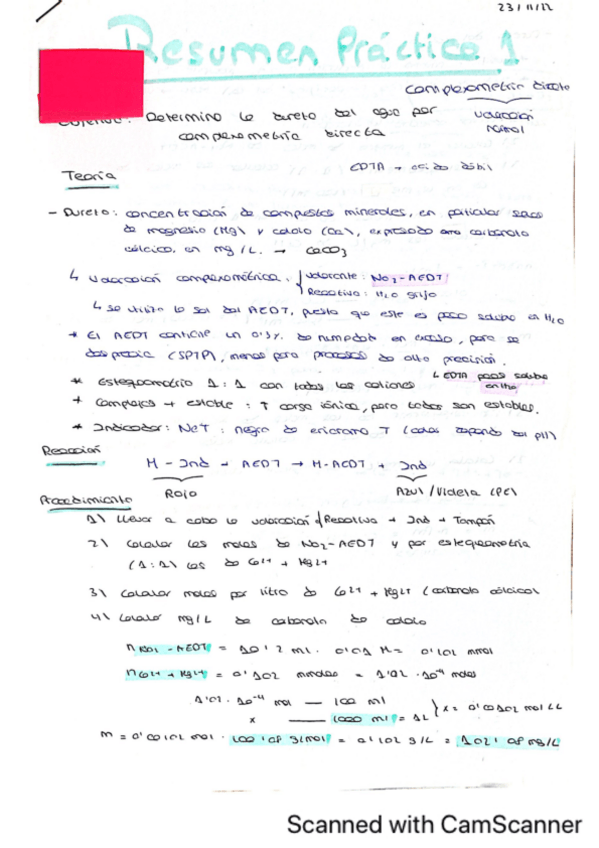 23/11/22
Resumen Práctica 1
complexometría directa
valoración normal
Determina la dureza del agua por
complexometría directa
EDTA → ácido débil
Teoría
- Dureza: concentración de compuestos minerales, en particular sales
de magnesio (Mg) y calcio (Ca), expresado como carbonato
cálcico, en mg/L. → CaCO3
↳ Valoración complexométrica. { Valorante: Na2-AEDT
Reactivo: H2O grifo
↳ se utiliza la sal del AEDT, puesto que este es poco soluble en H2O
* El AEDT contiene un 0'3%. de humedad en exceso, pero se
desprecia (SPTP), menos para procesos de alta precisión.
↳ EDTA poco soluble en H2O
* Estequiometría 1:1 con todos los cationes
* Complejos + estable: ↑ carga iónica, pero todos son estables.
* Indicador: NET: negro de ericromo T (color depende del pH)
Reacción
M-Ind + AEDT → M-AEDT + Ind
Rojo
Azul/Violeta (PE)
Procedimiento
1) Llevar a cabo la valoración Reactivo + Ind + Tampón
2) Calcular los moles de Na2-AEDT y por estequiometría
(1:1) los de Ca2+ + Mg2+
3) Calcular moles por litro de Ca2+ + Mg2+ (carbonato cálcico)
4) Calcular mg/L de carbonato de calcio
n Na2-AEDT = 10'2 ml. 0'01 M = 0'102 mmol
n Ca2+ + Mg2+ = 0'102 mmoles = 1'02 · 10-4 moles
1'02 · 10-4 mol — 100 ml
x — 1000 ml = 1L } x = 0'00102 mol/L
m = 0'00102 mol · 100'08 g/mol = 0'102 g/L = 102'08 mg/L
Scanned with CamScanner